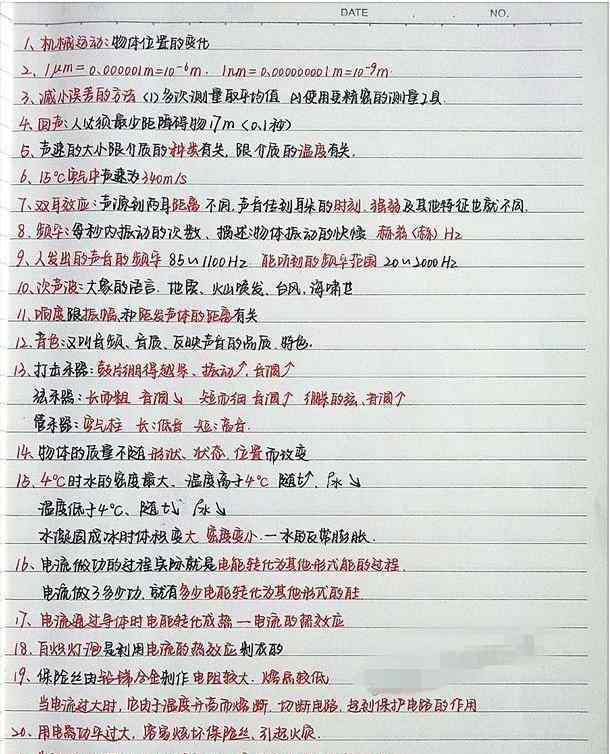 DATE NO.
1、机械运动:物体位置的变化
2、1μm=0.000001m=10⁻⁶m. 1nm=0.000000001m=10⁻⁹m.
3、减小误差的方法 (1)多次测量取平均值 (2)使用更精密的测量工具.
4、回声:人必须最少距障碍物17m(0.1秒)
5、声速的大小跟介质的种类有关,跟介质的温度有关.
6、15℃空气中声速为340m/s
7、双耳效应:声源到两耳距离不同,声音传到耳朵的时刻、强弱及其他特征也就不同.
8、频率:每秒内振动的次数、描述物体振动的快慢 赫兹(赫) Hz
9、人发出的声音的频率 85~1100Hz 能听到的频率范围 20~2000Hz
10、次声波:大象的语言、地震、火山喷发、台风、海啸
11、响度跟振幅、和距发声体的距离有关
12、音色:又叫音频、音质、反映声音的品质、特色.
13、打击乐器:鼓皮绷得越紧、振动↑,音调↑
弦乐器:长而粗 音调↘ 短而细 音调↑ 绷紧的弦、音调↑
管乐器:空气柱 长:低音 短:高音.
14、物体的质量不随形状、状态、位置而改变
15、4℃时水的密度最大、温度高于4℃ 随t↑、ρ水↘
温度低于4℃、随t↘ ρ水↘
水凝固成冰时体积变大 密度变小.一水的反常膨胀.
16、电流做功的过程实际就是电能转化为其他形式能的过程.
电流做了多少功,就有多少电能转化为其他形式的能
17、电流通过导体时电能转化成热一电流的热效应
18、白炽灯泡是利用电流的热效应制成的
19、保险丝由铅锑合金制作 电阻较大、熔点较低
当电流过大时,它由于温度升高而熔断,切断电路,起到保护电路的作用
20、用电器功率过大,容易烧坏保险丝,引起火灾.